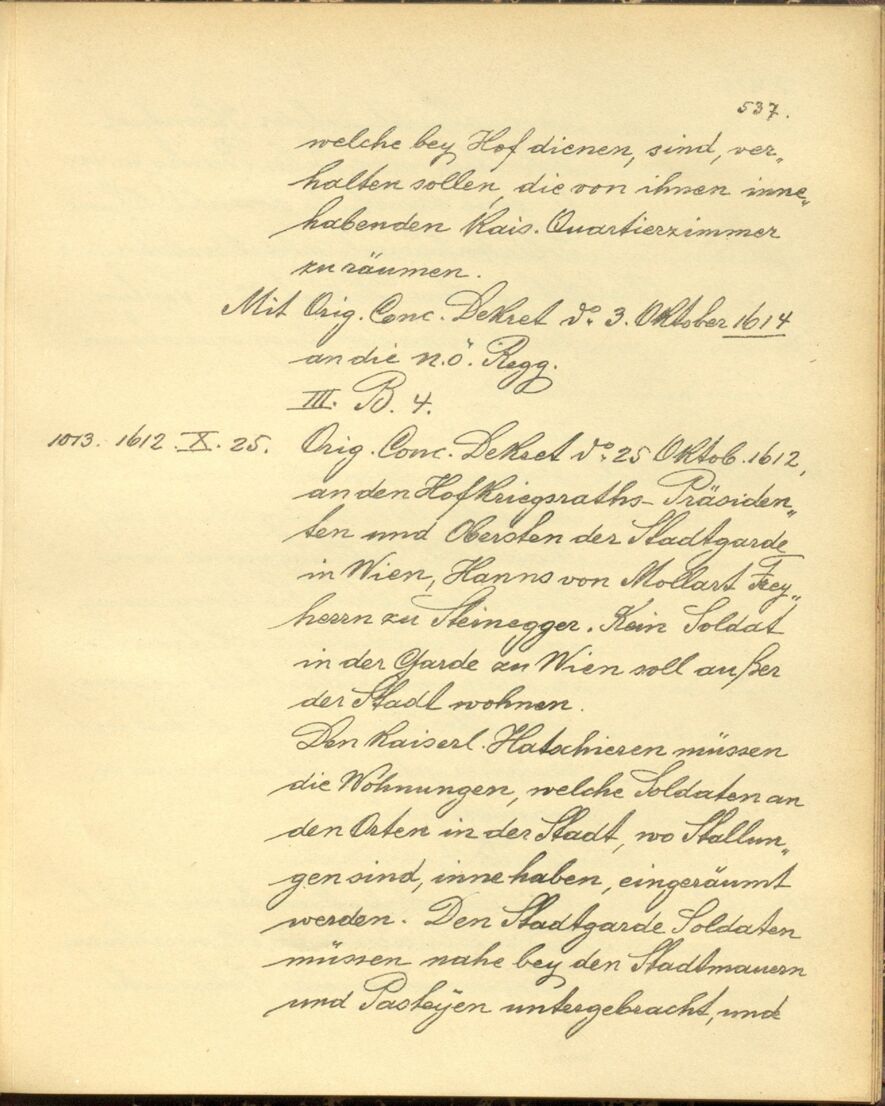 537.
welche bey Hof dienen, sind, ver„
halten sollen, die von ihnen inne„
habenden Kais. Quartierzimmer
zu räumen.
Mit Orig. Conc. Dekret do. 3. Oktober 1614
an die n.ö. Regg.
III. B. 4.
1013. 1612. X. 25. Orig. Conc. Dekret do. 25 Oktob. 1612,
an den Hofkriegsraths-Präsiden„
ten und Obersten der Stadtgarde
in Wien, Hanns von Mollart Frey„
herrn zu Steinegger. Kein Soldat
in der Garde zu Wien soll außer
der Stadt wohnen.
Den Kaiserl. Hatschieren müssen
die Wohnungen, welche Soldaten an
den Orten in der Stadt, wo Stallun„
gen sind, inne haben, eingeräumt
werden. Den Stadtgarde Soldaten
müssen nahe bey den Stadtmauern
und Pasteÿen untergebracht, und